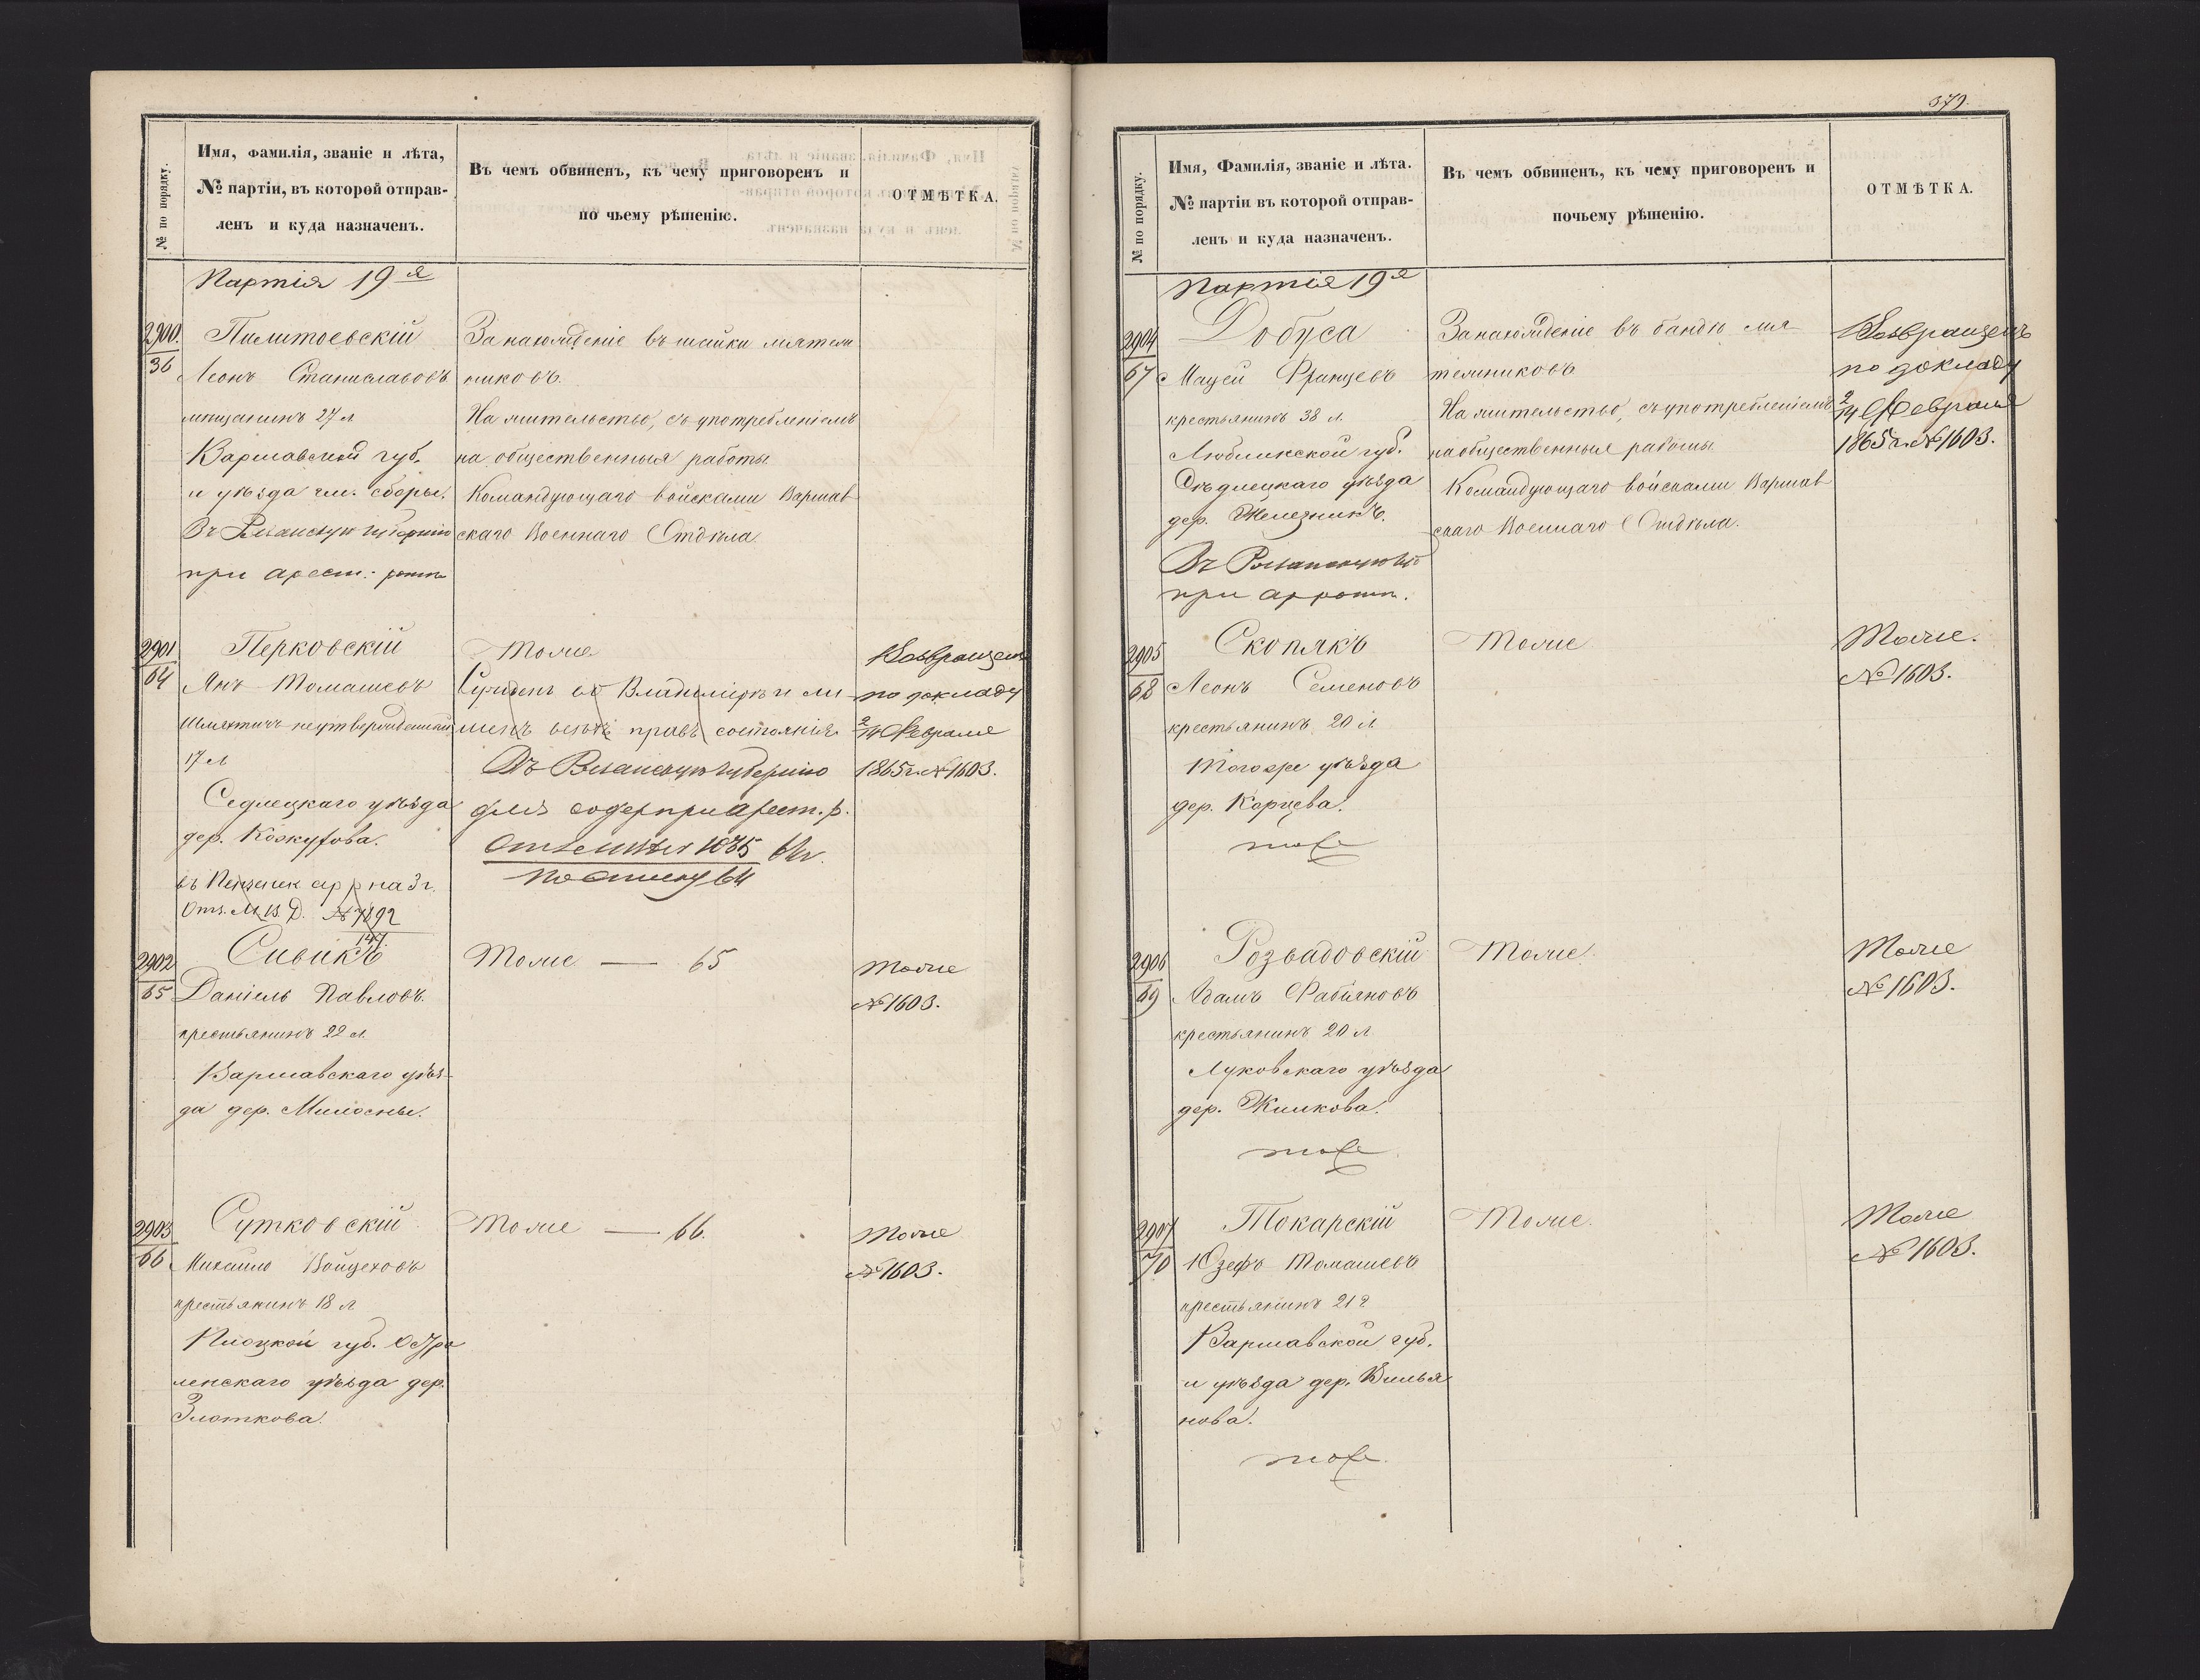 № по порядку.
Имя, фамилія, званіе и лѣта,
№ партіи, въ которой отправ-
ленъ и куда назначенъ.
Въ чемъ обвиненъ, къ чему приговоренъ и
по чьему рѣшенію.
ОТМѢТКА.
Партія 19я
2900.
36
Леонъ Станиславовъ
мѣщанинъ 27 л
Варшавской губ.
и уѣзда гм.
Въ Рязанскую губернію
при арест. ротѣ
За нахожденіе въ шайки мятеж
никовъ.
На жительство, съ употребленіемъ
на общественныя работы
Командующаго войсками Варшав
скаго Военнаго Отдѣла.
2901
64
Перковскій
Янъ Томашевъ
Шляхтичъ неутвержденный
17 л
Седлецкаго уѣзда
дер.
на 3 г.
Отз. М. В. Д. № 7892
147.
Тоже
Сужденъ въ и ли
шенъ всѣхъ правъ состоянія
Въ Рязанскую губернію
для содер при арест. р.
64
Возвращенъ
по докладу
2/14 Февраля
1865 г. № 1603.
2902
65
Сивикъ
Даніель Павловъ.
крестьянинъ 22 л.
Варшавскаго уѣз-
да дер. Милосны.
Тоже — 65
тоже
№ 1603.
2903
66
Сутковскій
Михайло Войцеховъ
крестьянинъ 18 л
Плоцкой губ. Остро
ленскаго уѣзда дер.
Злоткова.
Тоже — 66.
тоже
№ 1603.
379.
№ по порядку.
Имя, Фамилія, званіе и лѣта.
№ партіи въ которой отправ-
ленъ и куда назначенъ.
Въ чемъ обвиненъ, къ чему приговоренъ и
почьему рѣшенію.
ОТМѢТКА.
Партія 19я
2904
67
Добуса
Мацей Францевъ
крестьянинъ 38 л.
Люблинской губ.
Сѣдлецкаго уѣзда
дер. Железникъ.
Въ Рязанскую
при ар ротѣ.
За нахожденіе въ бандѣ мя
тежниковъ
На жительство, съ употребленіемъ
на общественные работы
Командующаго войсками Варшав
скаго Военнаго Отдѣла.
Возвращенъ
по докладу
2/14 Февраля
1865 г. № 1603.
2905
68
Скопякъ
Леонъ Семеновъ
крестьянинъ 20 л
Тогоже уѣзда
дер. Корцева.
тоже
Тоже
Тоже.
№ 1603.
2906
69
Розвадовскій
Адамъ Фабіяновъ
крестьянинъ 20 л
Луковскаго уѣзда
дер. Жилкова.
тоже
Тоже.
Тоже
№ 1603.
2907
70
Токарскій
Юзефъ Томашевъ
крестьянинъ 21 г
Варшавской губ.
и уѣзда дер. Вилья
нова.
тоже.
Тоже.
Тоже
№ 1603.